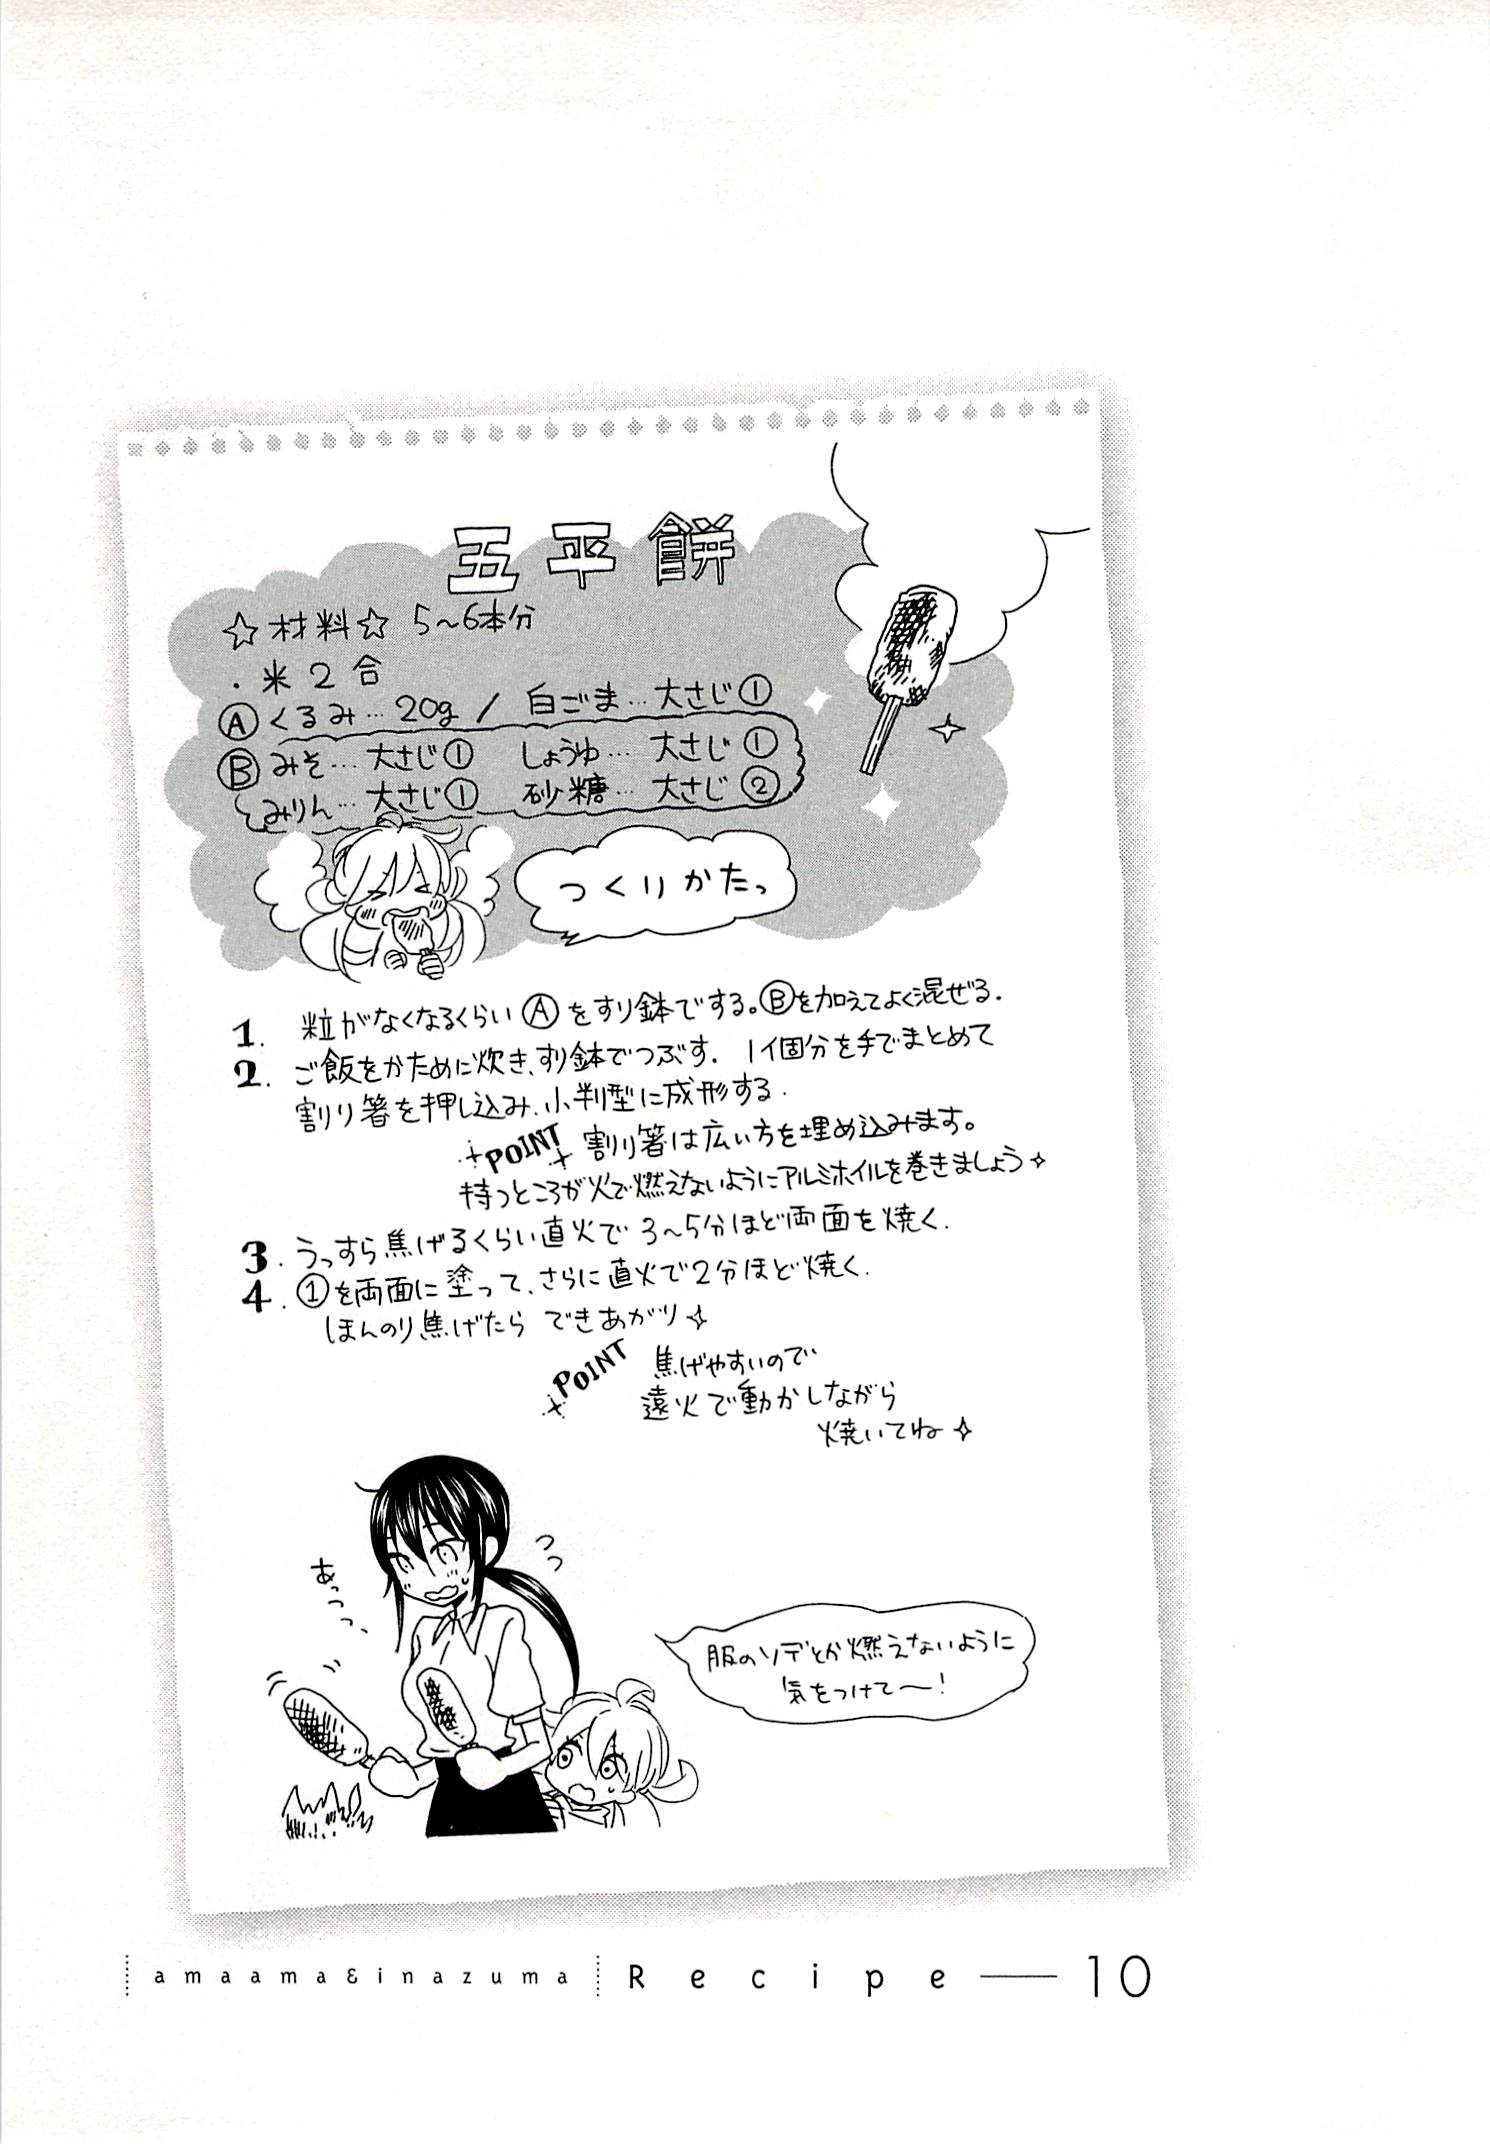 五平餅
☆材料☆ 5～6本分
・米2合
Ⓐくるみ…20g / 白ごま…大さじ①
Ⓑみそ…大さじ① しょうゆ…大さじ①
みりん…大さじ① 砂糖…大さじ②
つくりかたっ
1. 粒がなくなるくらいⒶをすり鉢でする。Ⓑを加えてよく混ぜる.
2. ご飯をかために炊き、すり鉢でつぶす. 1個分を手でまとめて
割り箸を押し込み、小判型に成形する.
POINT 割り箸は広い方を埋め込みます。
持つところが火で燃えないようにアルミホイルを巻きましょう✧
3. うっすら焦げるくらい直火で3～5分ほど両面を焼く.
4. ①を両面に塗って、さらに直火で2分ほど焼く.
ほんのり焦げたら できあがり✧
POINT 焦げやすいので
遠火で動かしながら
焼いてね✧
あっっっ
っっ
服のソデとか燃えないように
気をつけて〜!
amaama&inazuma Recipe — 10